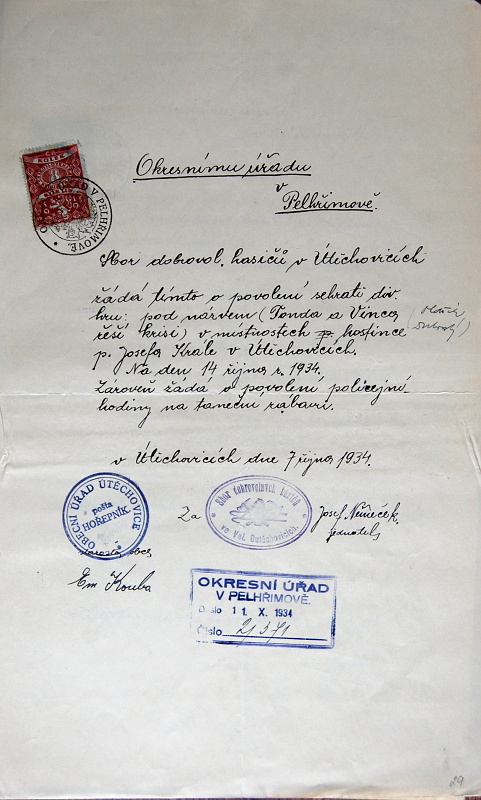 Okresnímu úřadu
v
Pelhřimově.
KOLEK
V PELHŘIMOVĚ
Sbor dobrovol. hasičů v Útěchovicích
žádá tímto o povolení sehrati div.
hru: pod názvem (Tonda a Vinca
řeší krisi) v místnostech hostince
p. Josefa Krále v Útěchovicích.
Na den 14 října r. 1934.
Zároveň žádá o povolení policejní
hodiny na taneční zábavu.
v Útěchovicích dne 7 října 1934.
OBECNÍ ÚŘAD ÚTĚCHOVICE
pošta
HOŘEPNÍK
Za
Sbor dobrovolných hasičů
ve Vel. Outěchovicích.
Josef Němeček,
jednatel
starosta obce
Em Kouba
OKRESNÍ ÚŘAD
V PELHŘIMOVĚ.
Došlo 11. X. 1934
Číslo 21371
29